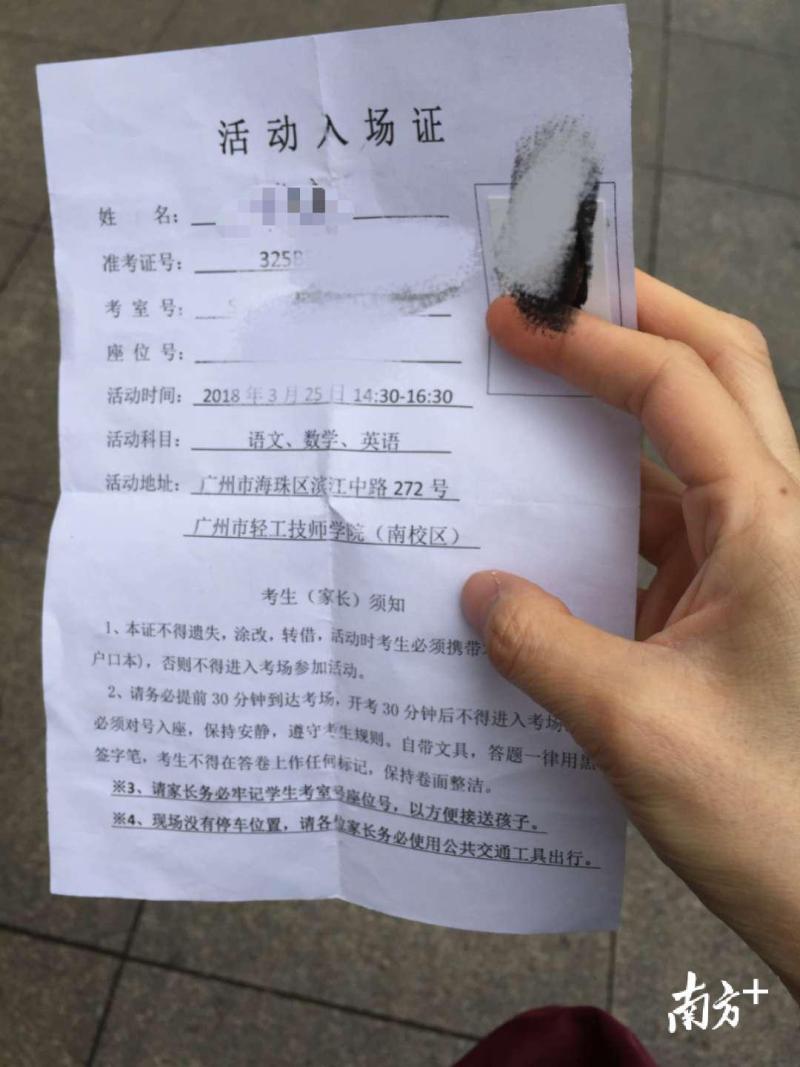 活动入场证
姓 名：
准考证号： 325B
考室号：
座位号：
活动时间： 2018 年 3 月 25 日 14:30-16:30
活动科目： 语文、数学、英语
活动地址： 广州市海珠区滨江中路 272 号
广州市轻工技师学院（南校区）
考生（家长）须知
1、本证不得遗失，涂改，转借，活动时考生必须携带
户口本），否则不得进入考场参加活动。
2、请务必提前 30 分钟到达考场，开考 30 分钟后不得进入考场
必须对号入座，保持安静，遵守考生规则。自带文具，答题一律用黑
签字笔，考生不得在答卷上作任何标记，保持卷面整洁。
※3、请家长务必牢记学生考室号座位号，以方便接送孩子。
※4、现场没有停车位置，请各位家长务必使用公共交通工具出行。
南方+